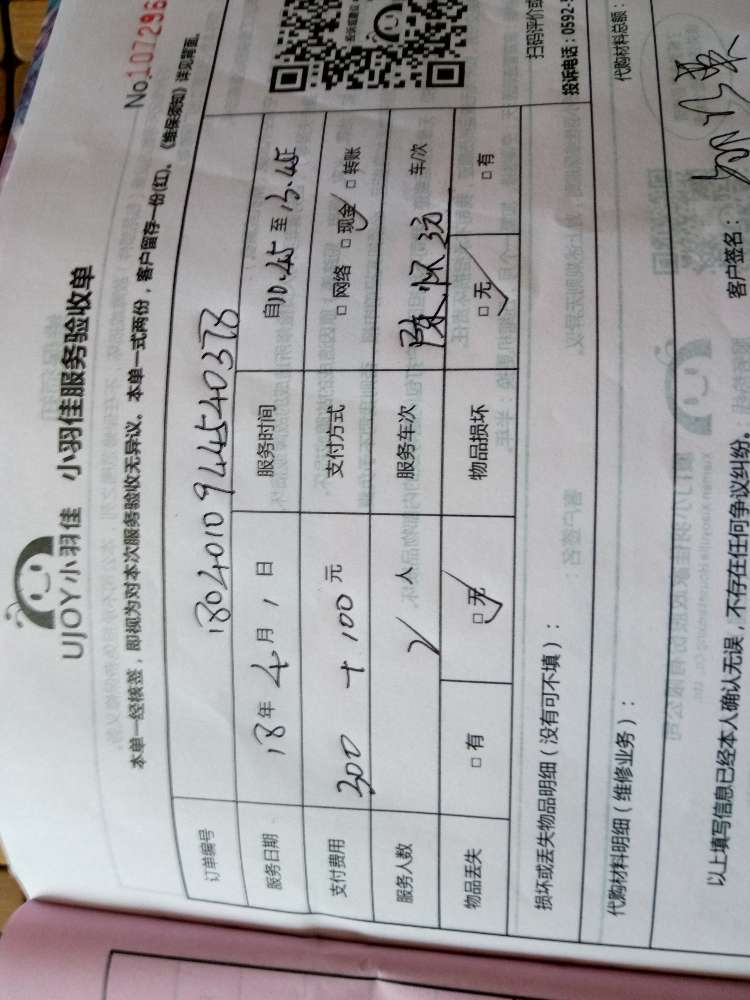 UJOY小羽佳 小羽佳服务验收单
No.107296
本单一经核签，即视为对本次服务验收无异议。本单一式两份，客户留存一份(红)。《维保须知》详见背面。
订单编号 180401094454037B
服务日期 18年 4月 1日 服务时间 自10.45至13.45
支付费用 300 + 100元 支付方式 □网络 □现金✓ □转账
服务人数 2人 服务车次 陈怀 车/次
物品丢失 □有 □无✓ 物品损坏 □无✓ □有
损坏或丢失物品明细（没有可不填）：
代购材料明细（维修业务）： 代购材料总额：
以上填写信息已经本人确认无误，不存在任何争议纠纷。 客户签名：
扫码评价或
投诉电话：0592-5